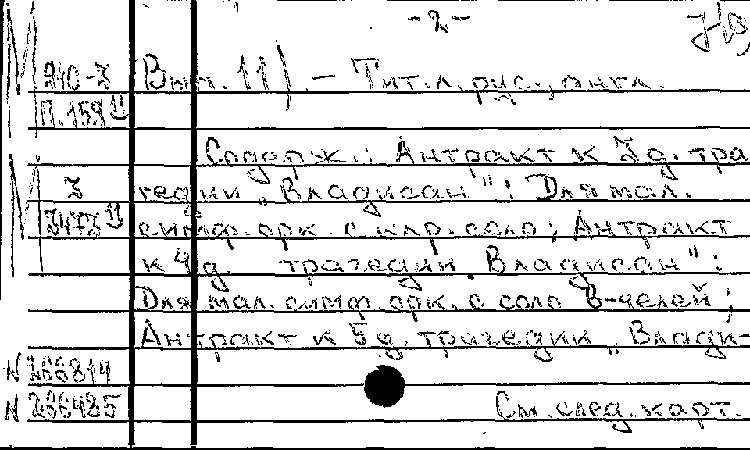 -2-
Вып. 11). – Тит. л. рис., англ.
П.159
Содерж.: Антракт к 3 д. тра
гедии „Владисан": Для мал.
симф. орк. с клр. соло; Антракт
к 4 д. трагедии „Владисан":
Для мал. симф. орк. с соло в-челей;
Антракт к 5 д. трагедии „Влади-
N 266814
N 236485
См. след. карт.